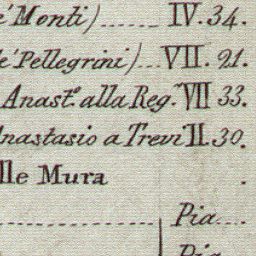 e' Monti)........ IV. 34.
de' Pellegrini)... VII. 21.
Anast.º alla Reg.ª VII 33.
Anastasio a Trevi II. 30.
lle Mura
Pia....
Pia